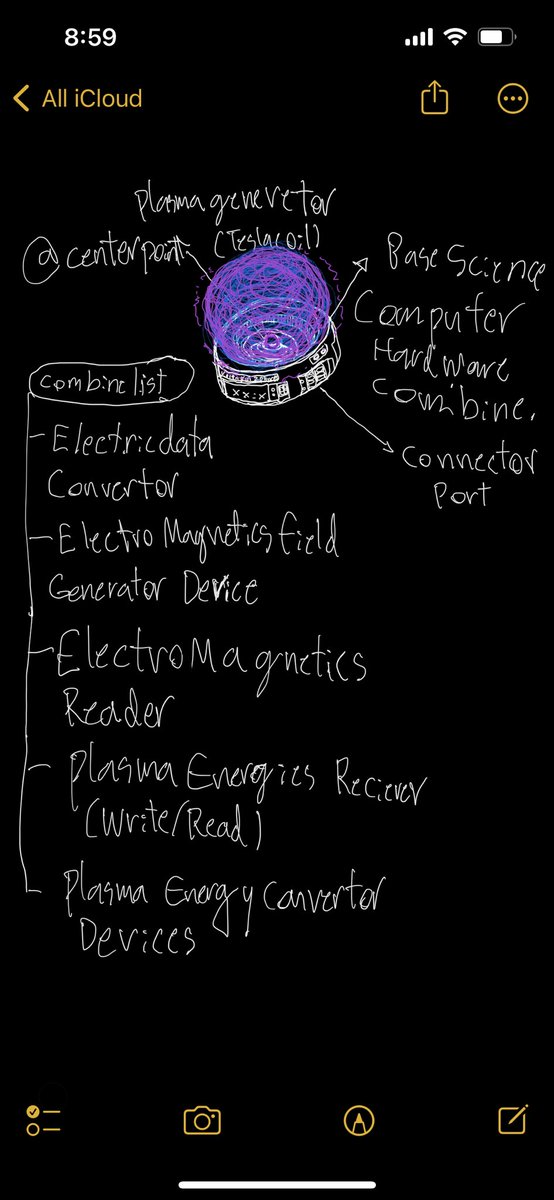 8:59
All iCloud
Plasma generetor
(Teslacoil)
@centerpoint
Base Science
Computer
Hardware
combine.
Connector
Port
combine list
- Electric data
Convertor
- Electro Magnetics field
Generator Device
- Electro Magnetics
Reader
- Plasma Energies Reciever
(Write/Read)
- Plasma Energy Convertor
Devices